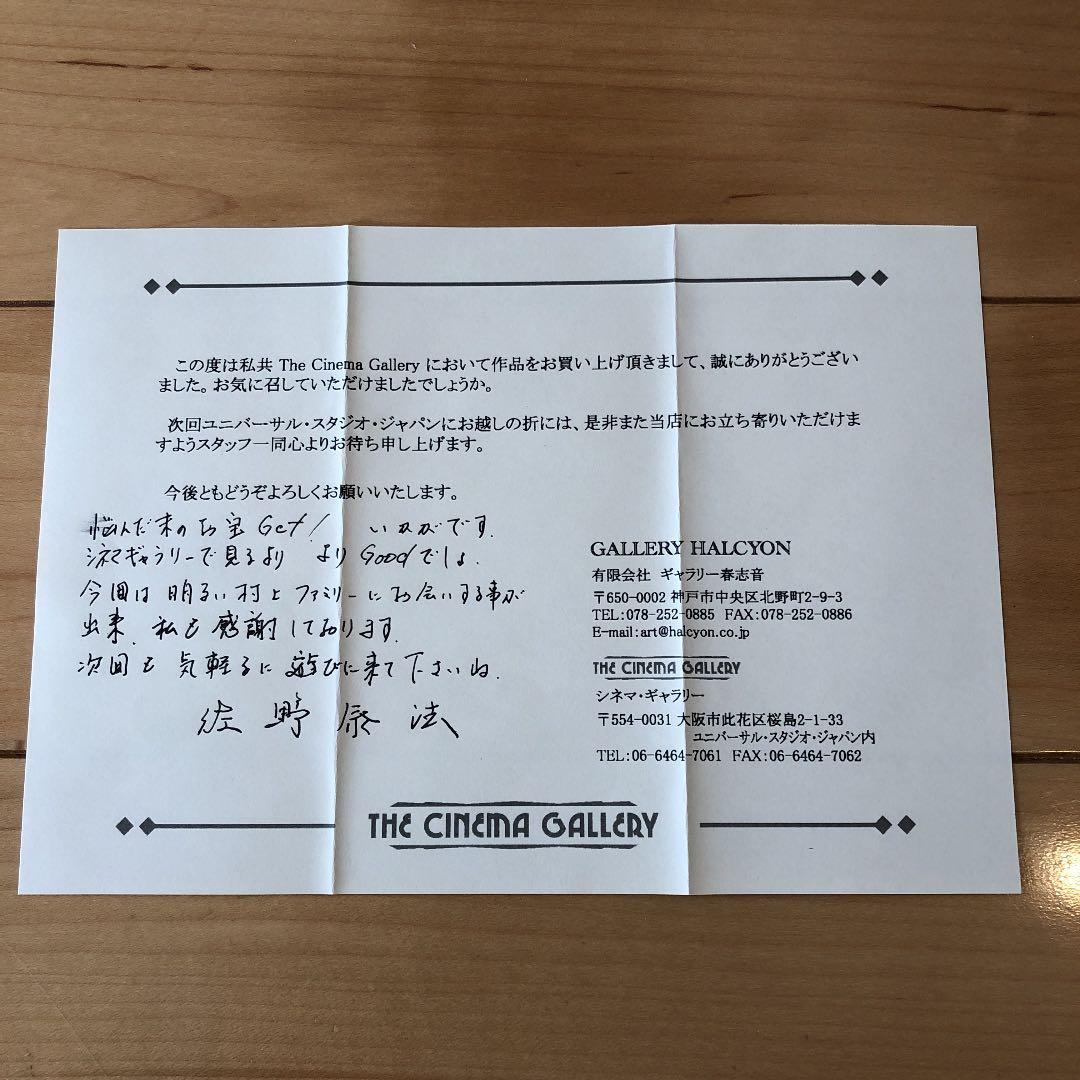 この度は私共 The Cinema Gallery において作品をお買い上げ頂きまして、誠にありがとうござい
ました。お気に召していただけましたでしょうか。
次回ユニバーサル・スタジオ・ジャパンにお越しの折には、是非また当店にお立ち寄りいただけま
すようスタッフ一同心よりお待ち申し上げます。
今後ともどうぞよろしくお願いいたします。
悩んだ末のお宝Get! いかがです.
シネマギャラリーで見るより よりGoodでしょ.
今回は明るい村上ファミリーにお会いする事が
出来、私も感謝しております.
次回も気軽るに遊びに来て下さいね.
佐野 法
GALLERY HALCYON
有限会社 ギャラリー春志音
〒650-0002 神戸市中央区北野町2-9-3
TEL:078-252-0885 FAX:078-252-0886
E-mail:art@halcyon.co.jp
THE CINEMA GALLERY
シネマ・ギャラリー
〒554-0031 大阪市此花区桜島2-1-33
ユニバーサル・スタジオ・ジャパン内
TEL:06-6464-7061 FAX:06-6464-7062
THE CINEMA GALLERY